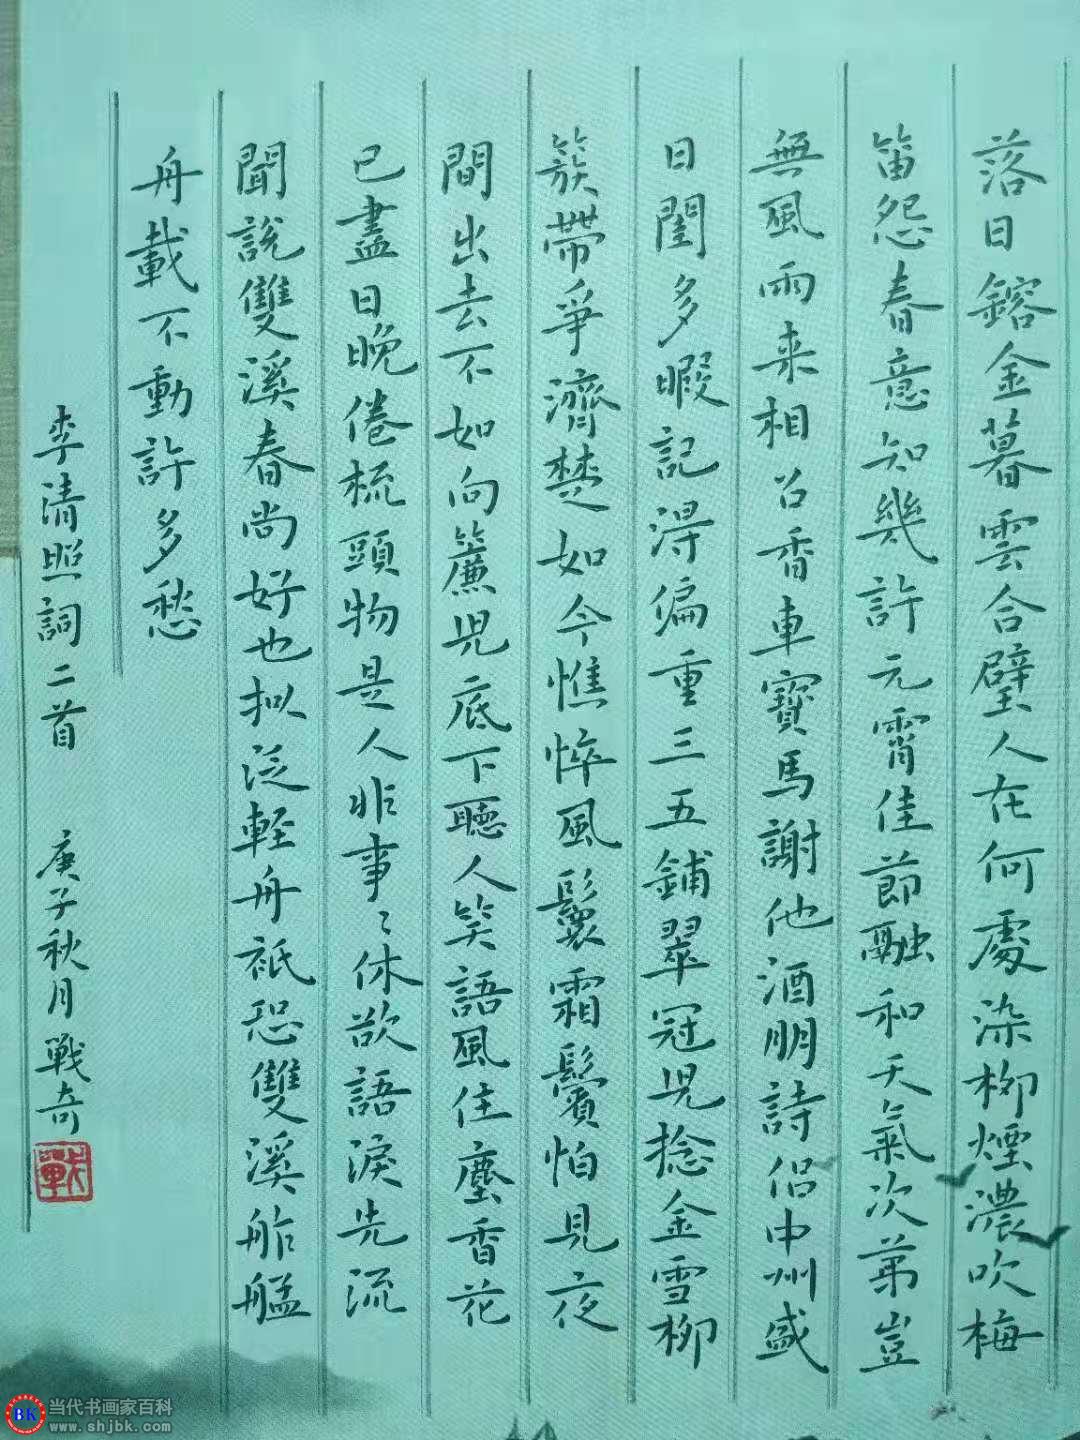 落日鎔金暮雲合璧人在何處染柳煙濃吹梅
笛怨春意知幾許元霄佳節融和天氣次第豈
無風雨来相召香車寶馬謝他酒朋詩侣中州盛
日閨多暇記得偏重三五鋪翠冠児捻金雪柳
簇帶爭濟楚如今憔悴風鬟霜鬢怕見夜
間出去不如向簾児底下聽人笑語風住塵香花
已盡日晚倦梳頭物是人非事〻休欲語淚先流
聞説雙溪春尚好也拟泛輕舟祇恐雙溪舴艋
舟載不動許多愁
李清照詞二首 庚子秋月戰奇
戰
BK 当代书画家百科
www.shjbk.com